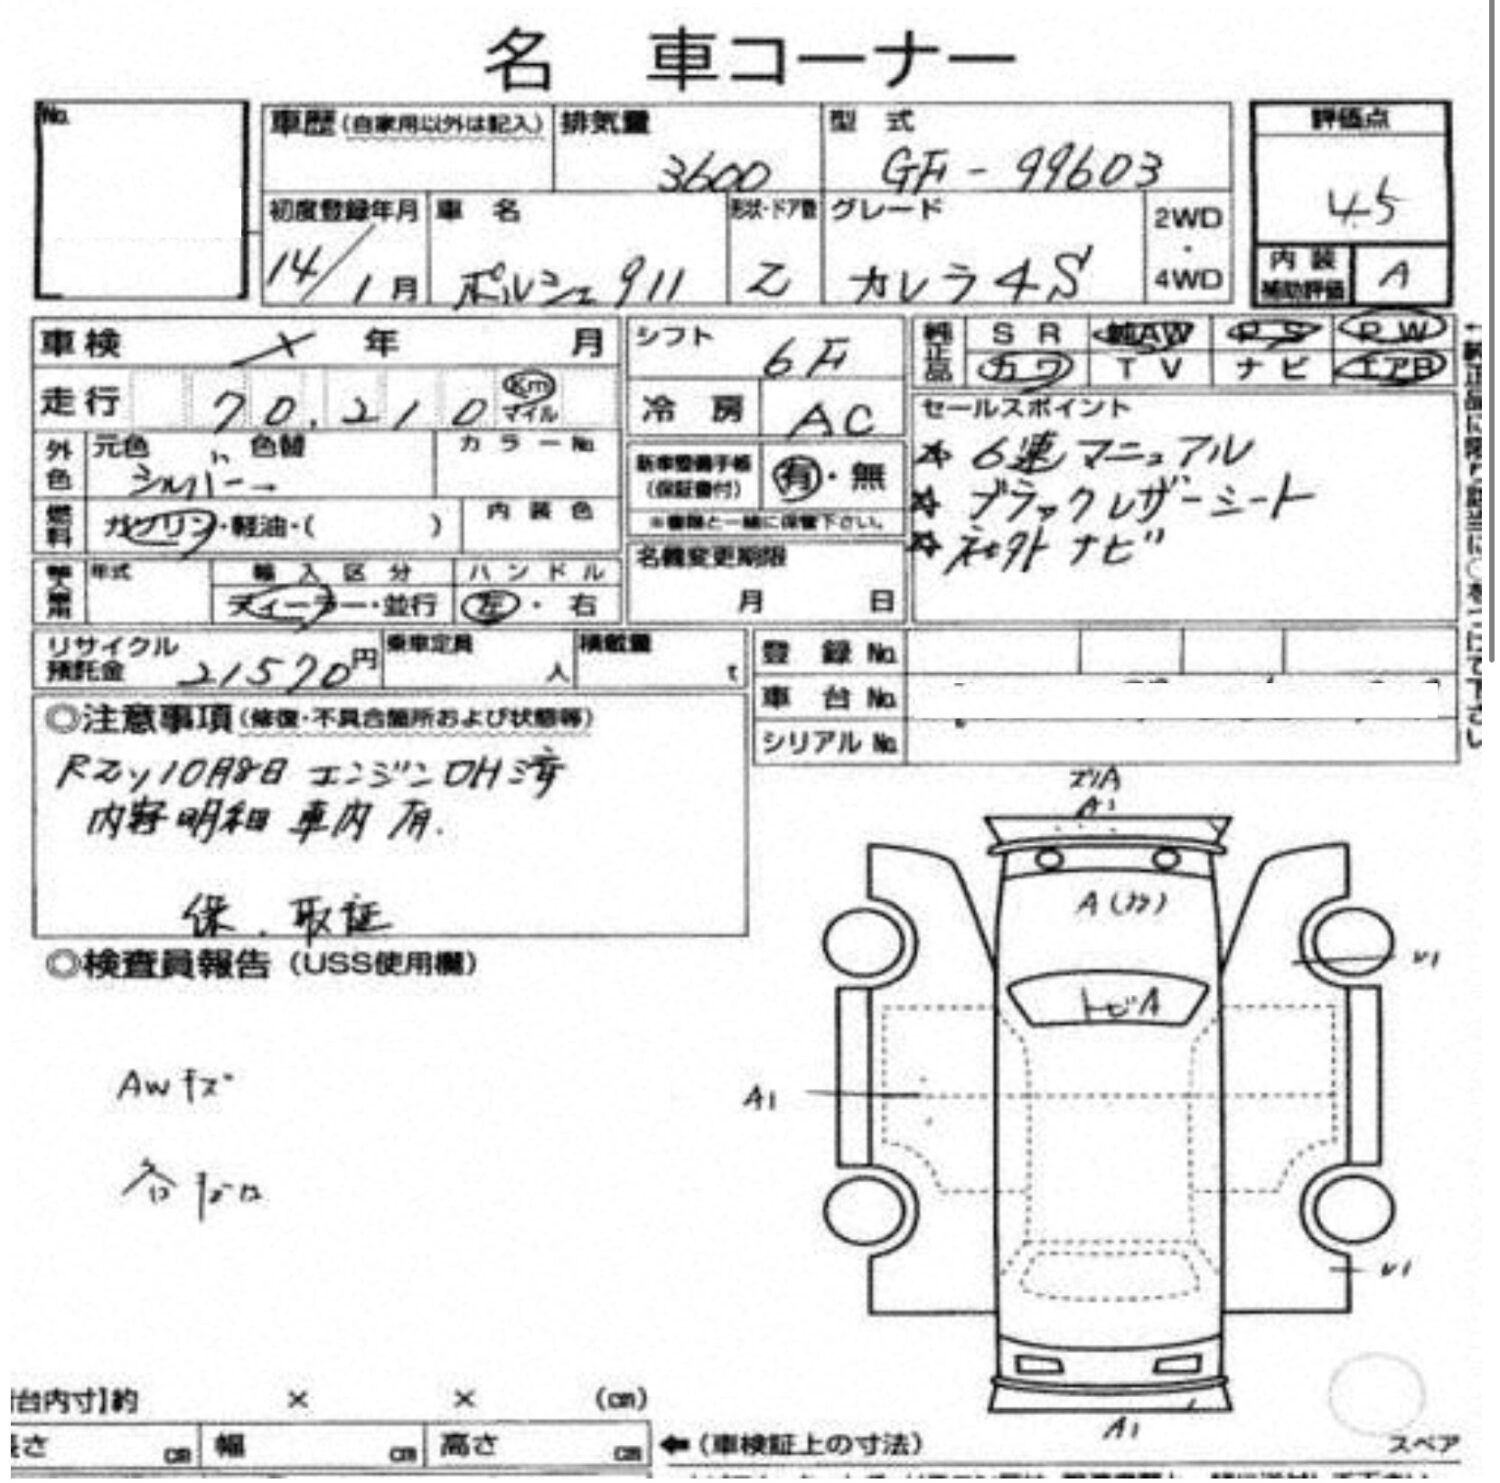 名 車コーナー
No.
車歴(自家用以外は記入)
排気量
3600
型 式
GF-99603
評価点
4.5
初度登録年月
14/1月
車 名
ポルシェ 911
形状・ドア数
2
グレード
カレラ4S
2WD
・
4WD
内 装
補助評価
A
車検
年 月
走行
70,210
Km
マイル
シフト
6F
冷 房
AC
純正品
SR 純AW PS PW
カワ TV ナビ エアB
外色
元色 色替
シルバー
カラーNo.
燃料
ガソリン・軽油・( )
内 装 色
新車整備手帳
(保証書付)
有・無
※書類と一緒に保管下さい。
セールスポイント
☆ 6連マニュアル
☆ ブラックレザーシート
☆ 社外ナビ
年式
輸 入 区 分
ディーラー・並行
ハ ン ド ル
左・右
名義変更期限
月 日
リサイクル
預託金
21570円
乗車定員
人
積載量
t
登 録 No.
車 台 No.
シリアル No.
◎注意事項(修復・不具合箇所および状態等)
R2年10月8日 エンジンOH済
内容明細 車内有.
保.取証
◎検査員報告(USS使用欄)
AWキズ
ズリA
A1
A(カケ)
トビA
U1
A1
U1
A1
台内寸]約 × × (cm)
長さ cm 幅 cm 高さ cm
←(車検証上の寸法)
スペア